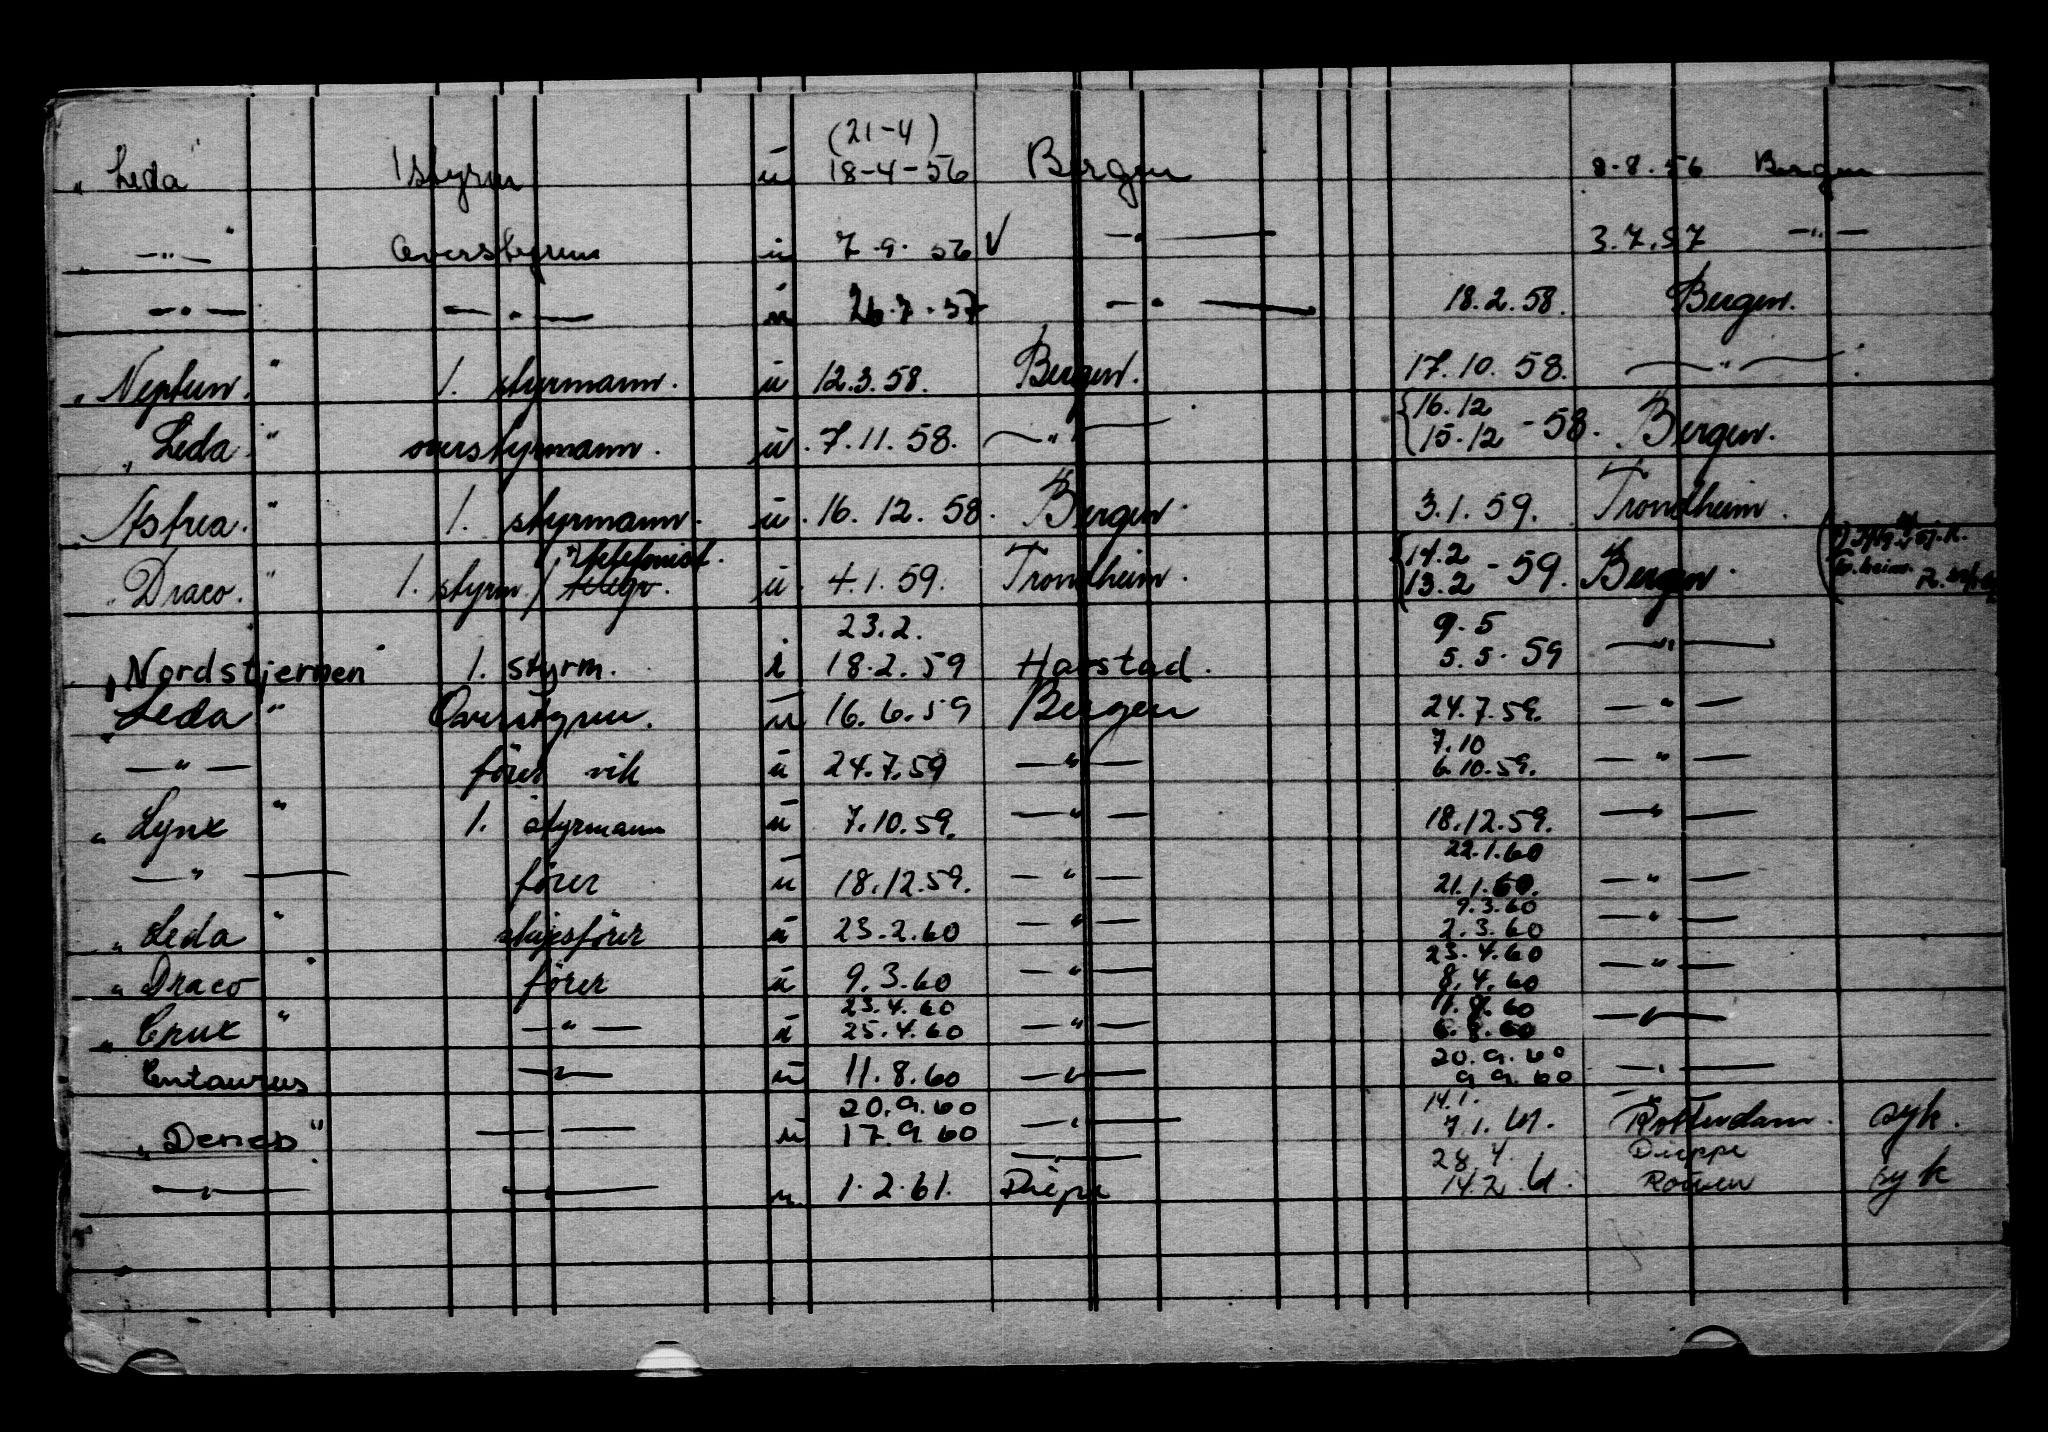 (21-4)
"Leda" 1 styrm u 18-4-56 Bergen 8-8.56 Bergen
" —"— " Overstyrm u 7.9.56 V —"— 3.7.57 —"—
—"— —"— u 26.7.57 —"— 18.2.58. Bergen.
"Neptun." 1. styrmann. u 12.3.58. Bergen. 17.10.58. —"—
16.12
"Leda" overstyrmann. u. 7.11.58. —"— 15.12 - 58. Bergen.
"Astrea." 1. styrmann. u. 16.12.58. Bergen. 3.1.59. Trondheim.
*) telefonist. 14.2
"Draco." 1. styrm / telegr. u. 4.1.59. Trondheim. 13.2 - 59. Bergen.
23.2. 9.5
"Nordstjernen" 1. styrm. i 18.2.59 Harstad. 5.5.59 —"—
"Leda" Overstyrm. u 16.6.59 Bergen 24.7.59. —"—
7.10
—"— fører vik u 24.7.59 —"— 6.10.59. —"—
"Lynx" 1. styrmann u 7.10.59. —"— 18.12.59. —"—
22.1.60
—"— fører u 18.12.59. —"— 21.1.60. —"—
9.3.60
"Leda" skipsfører u 23.2.60 —"— 2.3.60 —"—
23.4.60
"Draco" fører u 9.3.60 —"— 8.4.60 —"—
23.4.60 11.8.60
"Crux" —"— u 25.4.60 —"— 6.8.60 —"—
20.9.60
Centaurus —"— u 11.8.60 —"— 9.9.60 —"—
20.9.60 14.1.
"Deneb" —"— u 17.9.60 —"— 7.1.61. Rotterdam. syk.
28.4. Dieppe
—"— —"— u. 1.2.61. Diepe 14.2.61. Rouen syk